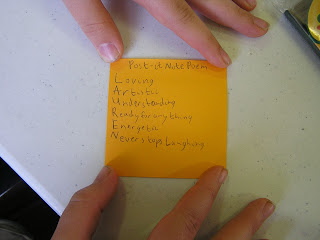 Post-it Note Poem
Loving
Artistic
Understanding
Ready for any thing
Energetic
Never stops Laughing